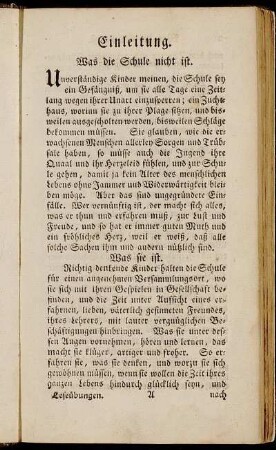 Einleitung.
Was die Schule nicht ist.
Unverständige Kinder meinen, die Schule sey
ein Gefängniß, um sie alle Tage eine Zeit-
lang wegen ihrer Unart einzusperren; ein Zucht-
haus, worinn sie zu ihrer Plage sitzen, und bis-
weilen ausgescholten werden, bisweilen Schläge
bekommen müssen. Sie glauben, wie die er-
wachsenen Menschen allerley Sorgen und Trüb-
sale haben, so müsse auch die Jugend ihre
Quaal und ihr Herzeleid fühlen, und zur Schu-
le gehen, damit ja kein Alter des menschlichen
Lebens ohne Jammer und Widerwärtigkeit blei-
ben möge. Aber das sind ungegründete Ein-
fälle. Wer vernünftig ist, der macht sich alles,
was er thun und erfahren muß, zur Lust und
Freude, und so hat er immer guten Muth und
ein fröhliches Herz, weil er weiß, daß alle
solche Sachen ihm und andern nützlich sind.
Was sie ist.
Richtig denkende Kinder halten die Schule
für einen angenehmen Versammlungsort, wo
sie sich mit ihren Gespielen in Gesellschaft be-
finden, und die Zeit unter Aufsicht eines er-
fahrnen, lieben, väterlich gesinnten Freundes,
ihres Lehrers, mit lauter vergnüglichen Be-
schäftigungen hinbringen. Was sie unter des-
sen Augen vornehmen, hören und lernen, das
macht sie klüger, artiger und froher. So er-
fahren sie, was sie denken, und worzu sie sich
gewöhnen müssen, wenn sie wollen die Zeit ihres
ganzen Lebens hindurch glücklich seyn, und
Leseübungen. A nach